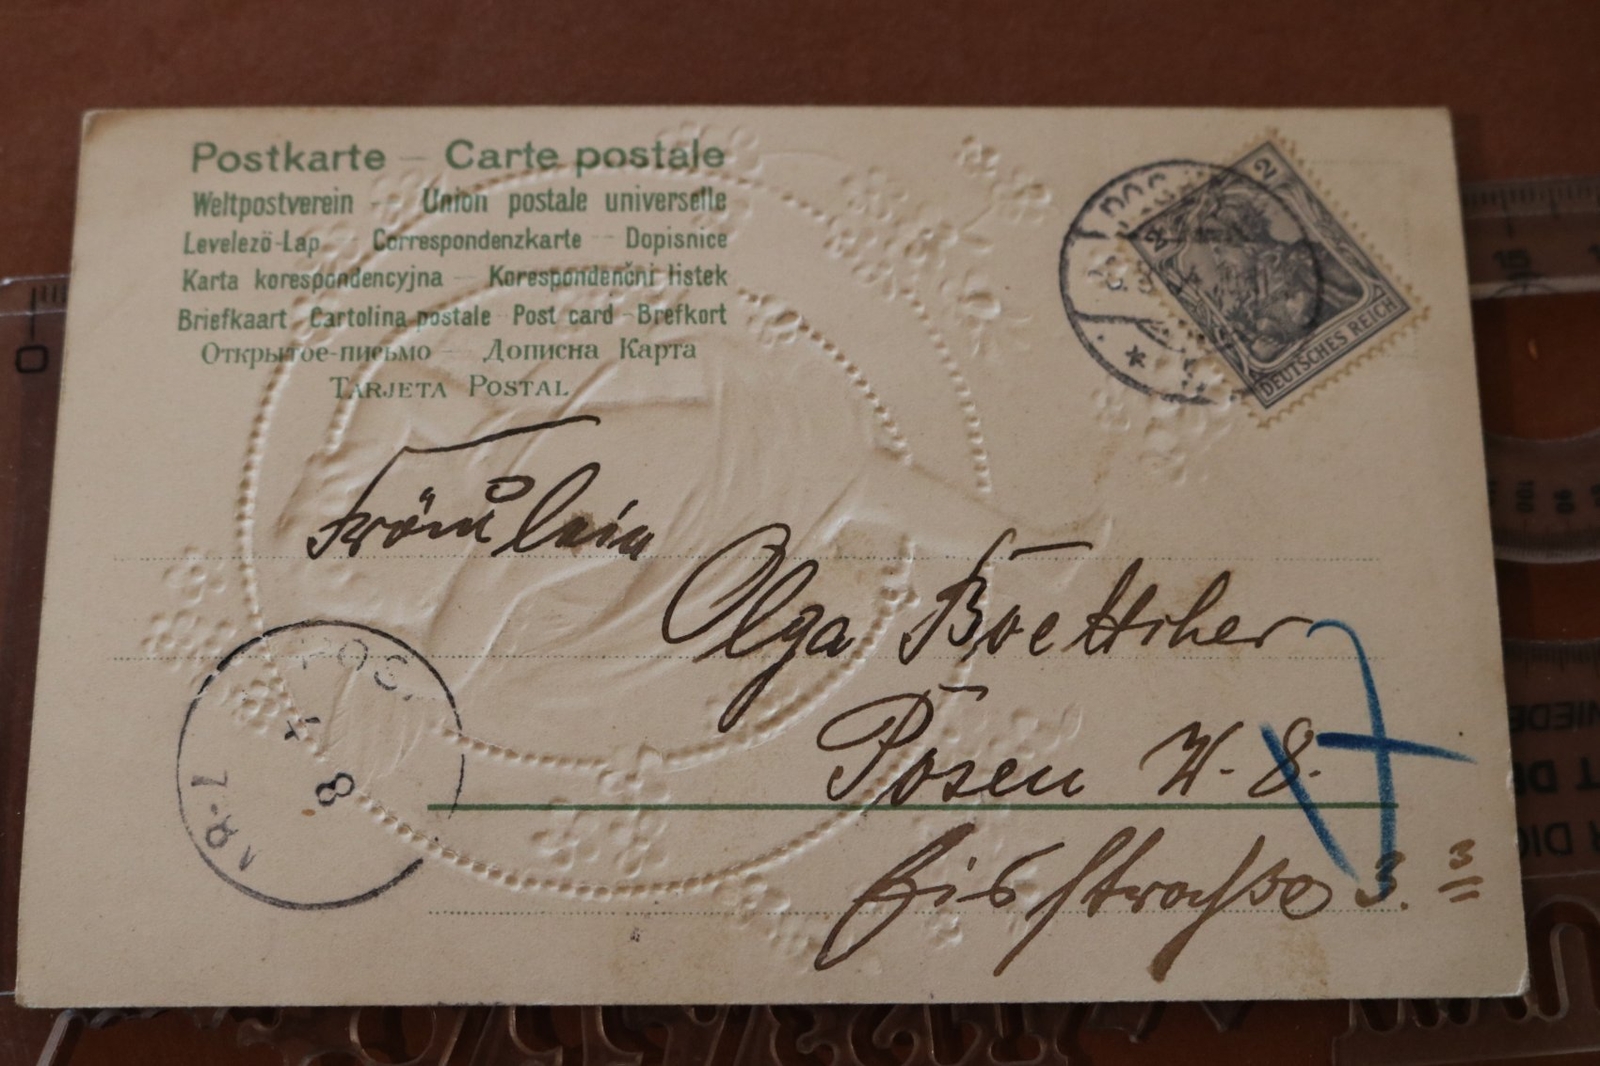 Postkarte – Carte postale
Weltpostverein – Union postale universelle
Levelező-Lap – Correspondenzkarte – Dopisnice
Karta korespondencyjna – Korespondenčni listek
Briefkaart Cartolina postale Post card – Brefkort
Открытое-письмо – Дописна Карта
TARJETA POSTAL
2
DEUTSCHES REICH
Fräulein
Olga Boettcher
Posen W. 8.
3. 3
8